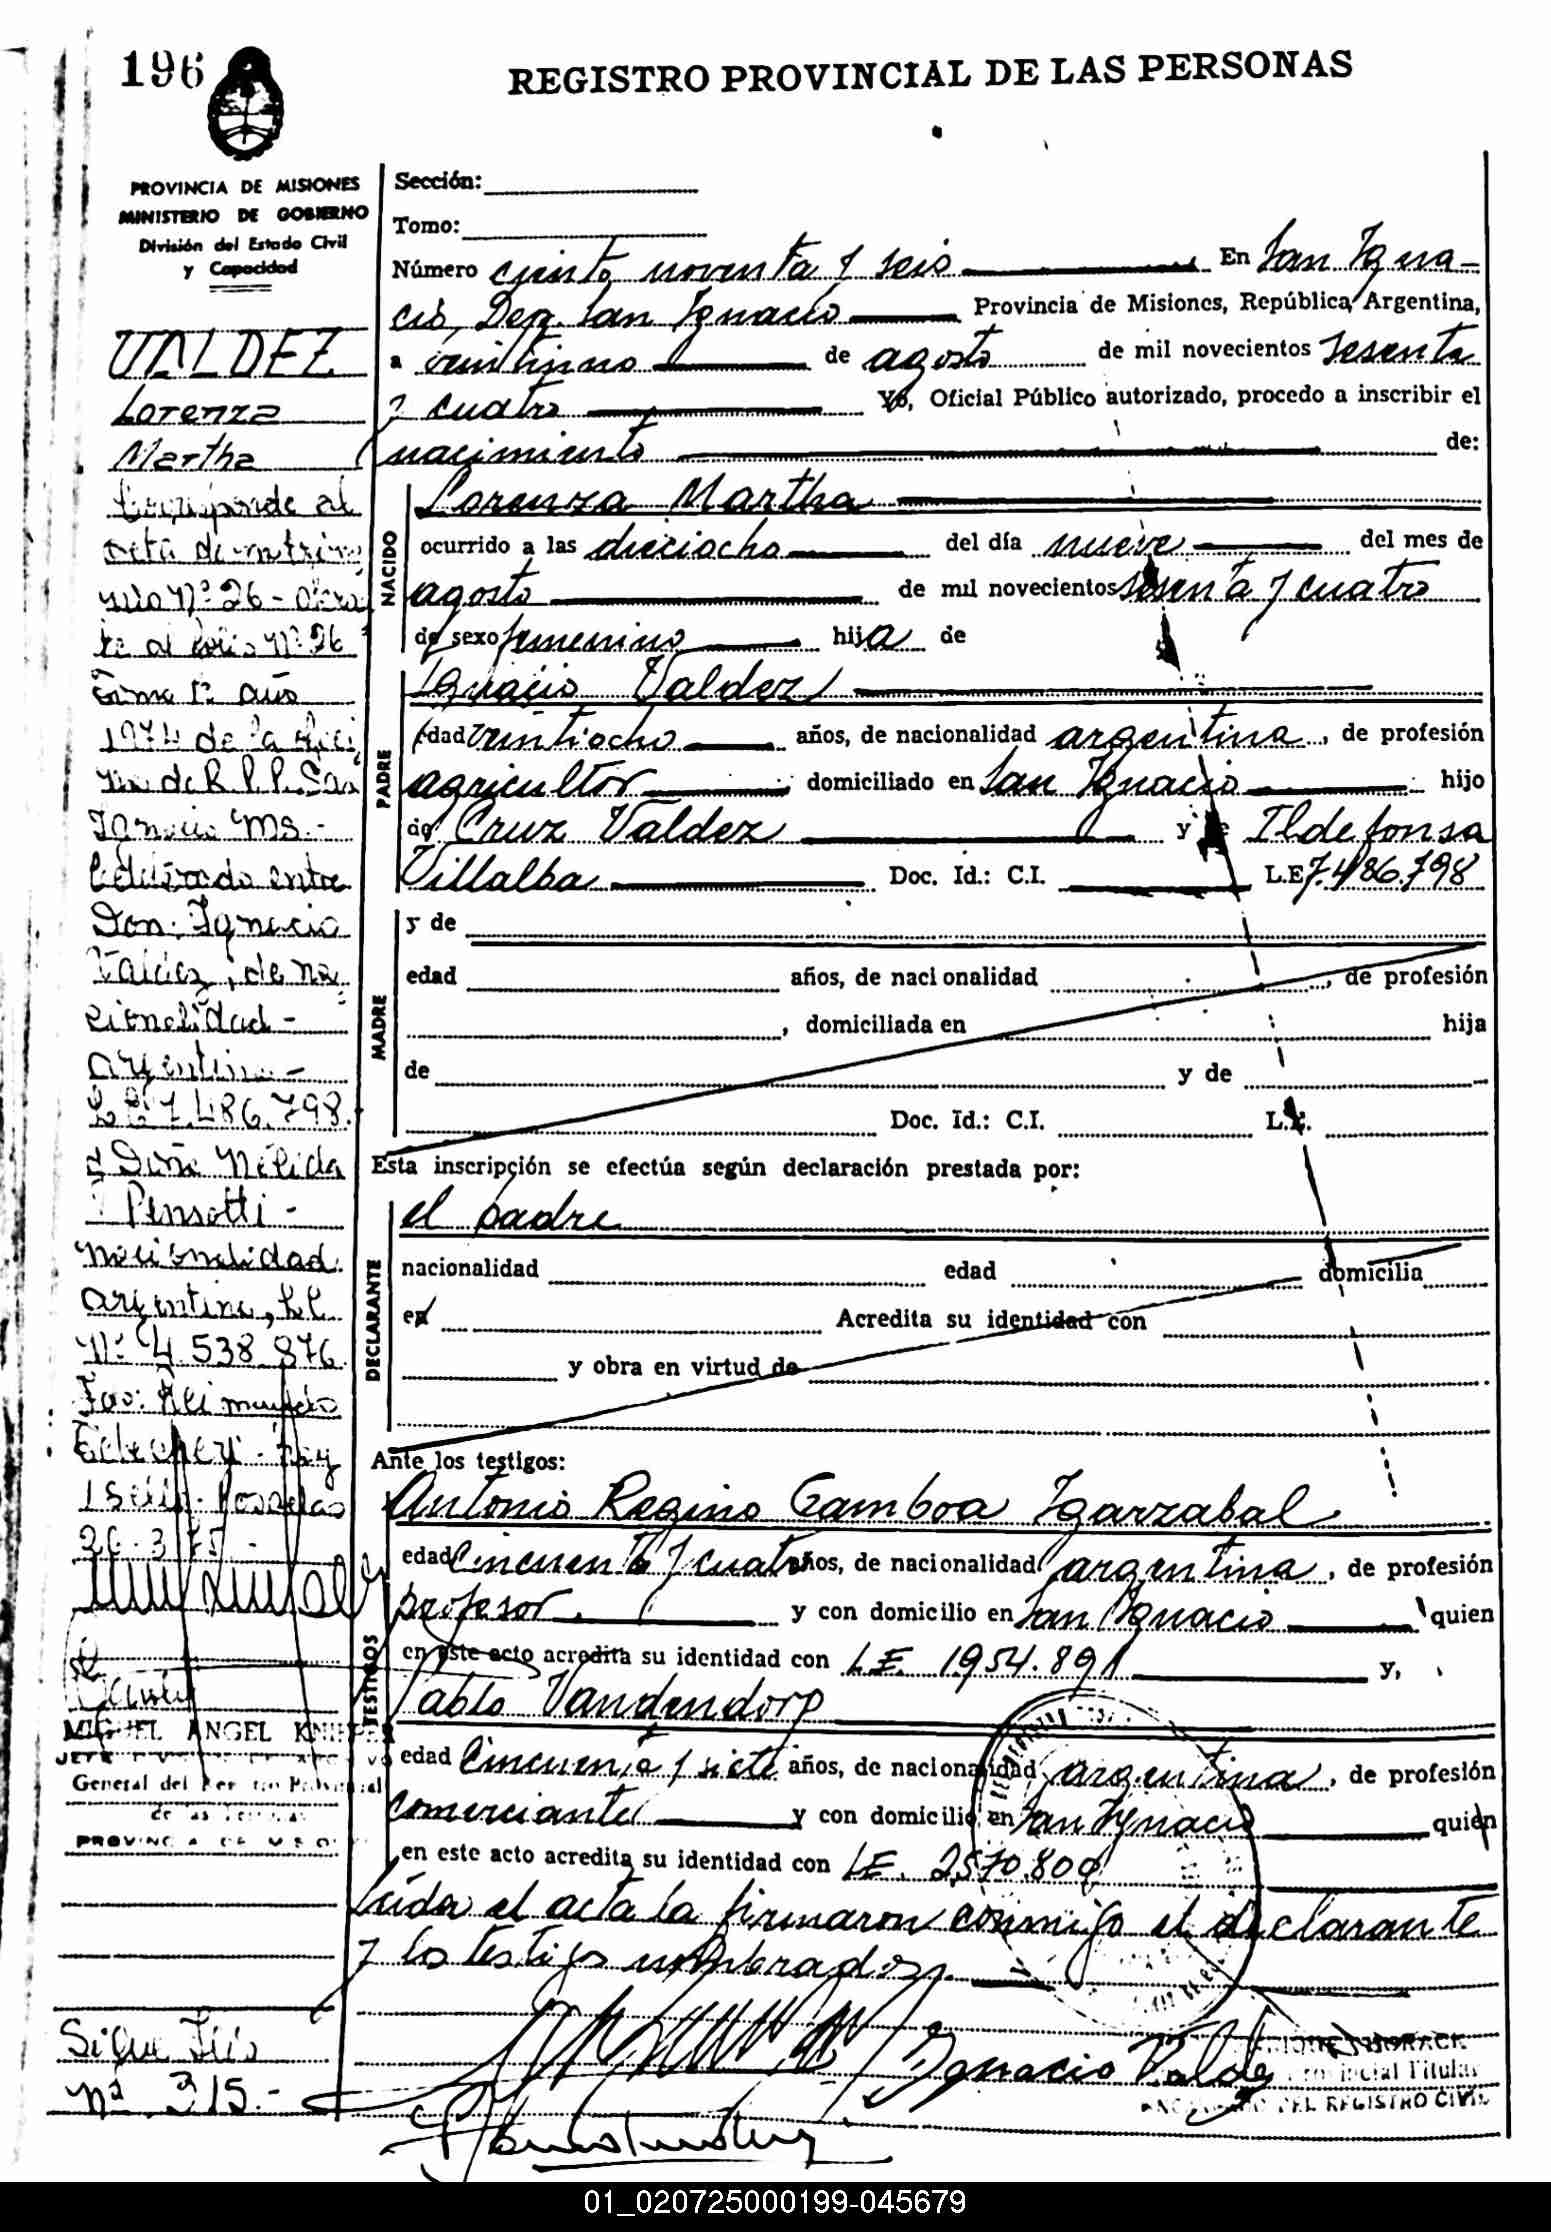 196
REGISTRO PROVINCIAL DE LAS PERSONAS
PROVINCIA DE MISIONES
MINISTERIO DE GOBIERNO
División del Estado Civil
y Capacidad
VALDEZ
Lorenza
Martha
Corresponde al
acta de matrimo
nio Nº 26 - obran
te al folio Nº 26
Tomo 1º año
1974 de la ofici
na de R.P.P. San
Ignacio Ms.-
Celebrado entre
Don: Ignacio
Valdez, de na
cionalidad -
argentina -
L.E. 7.486.798.
y Doña Nélida
Pensotti -
nacionalidad
argentina, L.C.
Nº 4.538.876
Posadas
26-3-75 -
MIGUEL ANGEL
General del Provincial
de las
PROVINCIA DE MISIONES
Sigue
Nº 315.-
Sección:
Tomo:
Número ciento noventa y seis En San Igna-
cio, Dep. San Ignacio Provincia de Misiones, República Argentina,
a veintiuno de agosto de mil novecientos sesenta
y cuatro Yo, Oficial Público autorizado, procedo a inscribir el
nacimiento de:
NACIDO
Lorenza Martha
ocurrido a las dieciocho del día nueve del mes de
agosto de mil novecientos sesenta y cuatro
de sexo femenino hija de
PADRE
Ignacio Valdez
edad veintiocho años, de nacionalidad argentina, de profesión
agricultor domiciliado en San Ignacio hijo
de Cruz Valdez y de Ildefonsa
Villalba Doc. Id.: C.I. L.E 7.486.798
MADRE
y de
edad años, de nacionalidad , de profesión
, domiciliada en hija
de y de
Doc. Id.: C.I. L.E.
Esta inscripción se efectúa según declaración prestada por:
DECLARANTE
el padre
nacionalidad edad domicilia
en Acredita su identidad con
y obra en virtud de
Ante los testigos:
TESTIGOS
Antonio Regino Gamboa Igarzabal
edad cincuenta y cuatro años, de nacionalidad argentina, de profesión
profesor y con domicilio en San Ignacio quien
en este acto acredita su identidad con L.E. 1954.891 y,
Pablo Vandendorp
edad cincuenta y siete años, de nacionalidad argentina, de profesión
comerciante y con domicilio en San Ignacio quien
en este acto acredita su identidad con L.E. 2570.800
Leída el acta la firmaron conmigo el declarante
y los testigos nombrados.
Ignacio Valdez
Provincial Titular
ENCARGADO DEL REGISTRO CIVIL
01_020725000199-045679